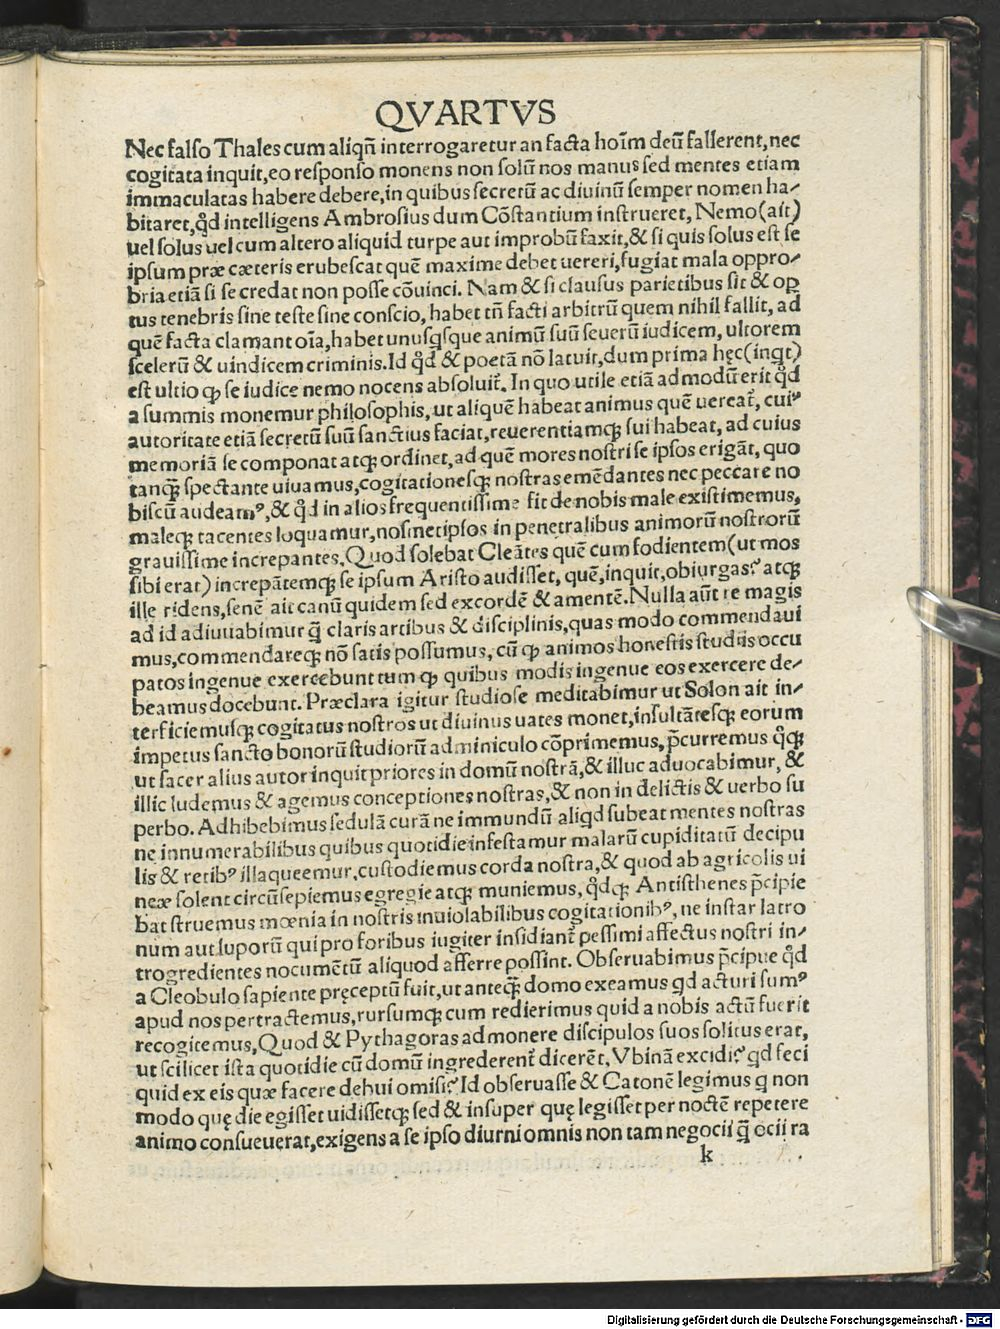 QVARTVS
Nec falso Thales cum aliqñ interrogaretur an facta hoĩm deũ fallerent, nec
cogitata inquit, eo responso monens non solũ nos manus sed mentes etiam
immaculatas habere debere, in quibus secretũ ac diuinũ semper nomen ha-
bitaret, qd̾ intelligens Ambrosius dum Cõstantium instrueret, Nemo (ait)
uel solus uel cum altero aliquid turpe aut improbũ faxit, & si quis solus est se
ipsum præ cæteris erubescat quẽ maxime debet uereri, fugiat mala oppro-
bria etiã si se credat non posse cõuinci. Nam & si clausus parietibus sit & oꝑ
tus tenebris sine teste sine conscio, habet tñ facti arbitrũ quem nihil fallit, ad
quẽ facta clamant oĩa, habet unusqsque animũ suũ seuerũ iudicem, ultorem
scelerũ & uindicem criminis. Id qd̾ & poetã nõ latuit, dum prima hęc (inqt)
est ultio ꝙ se iudice nemo nocens absoluit᷑. In quo utile etiã ad modũ erit qd̾
a summis monemur philosophis, ut aliquẽ habeat animus quẽ uereat᷑, cuiꝰ
autoritate etiã secretũ suũ sanctius faciat, reuerentiamqꝫ sui habeat, ad cuius
memoriã se componat atqꝫ ordinet, ad quẽ mores nostri se ipsos erigãt, quo
tanqꝫ̃ spectante uiuamus, cogitationesqꝫ nostras emẽdantes nec peccare no
biscũ audeamꝰ, & qd̾ in alios frequentissime fit de nobis male existimemus,
maleqꝫ tacentes loquamur, nosmetipsos in penetralibus animorũ nostrorũ
grauissime increpantes. Quod solebat Cleãtes quẽ cum fodientem (ut mos
sibi erat) increpãtemqꝫ se ipsum Aristo audisset, quẽ, inquit, obiurgas? atqꝫ
ille ridens, senẽ ait canũ quidem sed excordẽ & amentẽ. Nulla aũt re magis
ad id adiuuabimur q̃ claris artibus & disciplinis, quas modo commendaui
mus, commendareqꝫ nõ satis possumus, cũ ꝙ animos honestis studiis occu
patos ingenue exercebunt tum ꝙ quibus modis ingenue eos exercere de-
beamus docebunt. Præclara igitur studiose meditabimur ut Solon ait in-
terficiemusqꝫ cogitatus nostros ut diuinus uates monet, insultãtesqꝫ eorum
impetus sancto bonorũ studiorũ adminiculo cõprimemus, p̃curremus qͦqꝫ
ut sacer alius autor inquit priores in domũ nostrã, & illuc aduocabimur, &
illic ludemus & agemus conceptiones nostras, & non in delictis & uerbo su
perbo. Adhibebimus sedulã curã ne immundũ aliqd subeat mentes nostras
ne innumerabilibus quibus quotidie infestamur malarũ cupiditatũ decipu
lis & retibꝰ illaqueemur, custodiemus corda nostra, & quod ab agricolis ui
neæ solent circũsepiemus egregie atqꝫ muniemus, qd̾qꝫ Antisthenes p̃cipie
bat struemus mœnia in nostris inuiolabilibus cogitationibꝰ, ne instar latro
num aut luporũ qui pro foribus iugiter insidiant᷑ pessimi affectus nostri in-
trogredientes nocumẽtũ aliquod afferre possint. Obseruabimus p̃cipue qd̾
a Cleobulo sapiente pręceptũ fuit, ut anteqꝫ̃ domo exeamus qd acturi sumꝰ
apud nos pertractemus, rursumqꝫ cum redierimus quid a nobis actũ fuerit
recogitemus, Quod & Pythagoras admonere discipulos suos solitus erat,
ut scilicet ista quotidie cũ domũ ingrederent᷑ dicerẽt, Vbinã excidi? qd feci
quid ex eis quæ facere debui omisi? Id obseruasse & Catonẽ legimus q non
modo quę die egisset uidissetqꝫ sed & insuper quę legisset per noctẽ repetere
animo consueuerat, exigens a se ipso diurni omnis non tam negocii q̃ ocii ra
k
Digitalisierung gefördert durch die Deutsche Forschungsgemeinschaft - DFG